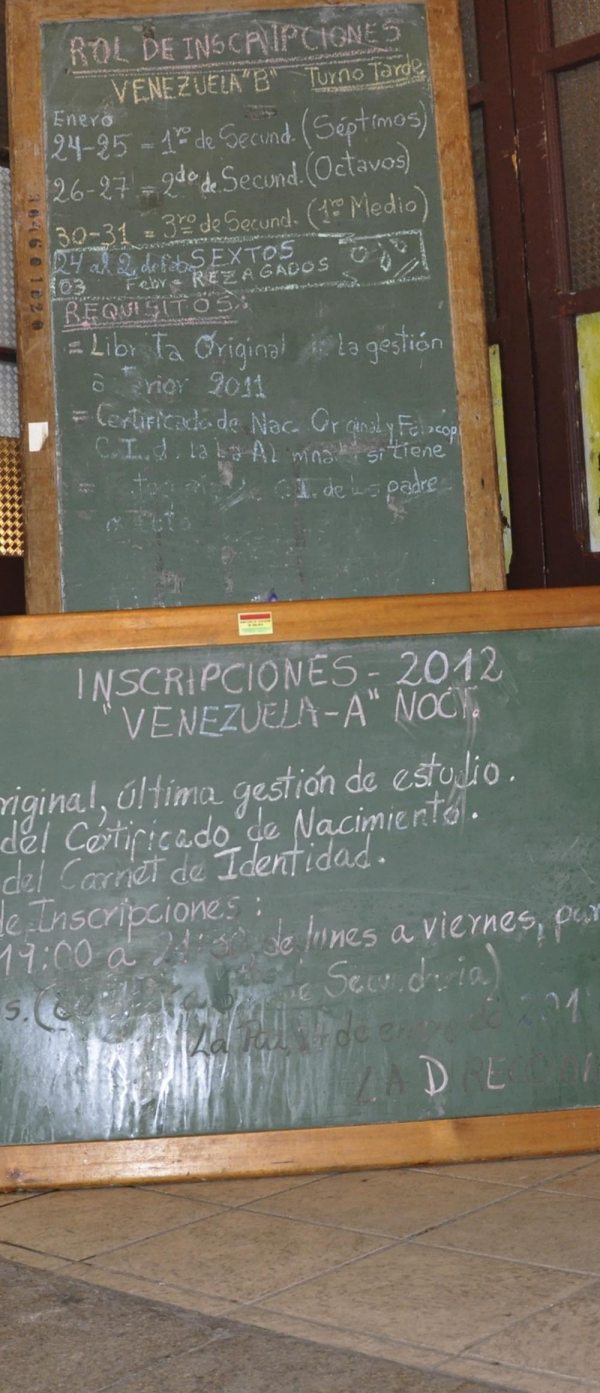 ROL DE INSCRIPCIONES
VENEZUELA "B" Turno Tarde
Enero
24-25 = 1ro de Secund. (Séptimos)
26-27 = 2do de Secund. (Octavos)
30-31 = 3ro de Secund. (1ro Medio)
24 al 2 de Feb. SEXTOS
03 Febr. REZAGADOS
REQUISITOS:
= Libr ta Original la gestión
rior 2011
= Certificado de Nac. Original y Fotocop
C.I. d la Al mna si tiene
= C.I. de padre
INSCRIPCIONES - 2012
"VENEZUELA-A" NOCT.
riginal, última gestión de estudio.
del Certificado de Nacimiento.
del Carnet de Identidad.
de Inscripciones:
19:00 a de lunes a viernes, por
s. Secundaria)
La Paz, de enero de 201
LA DIRECCION